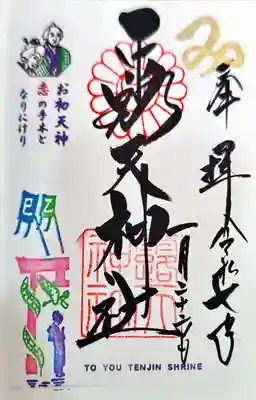 み
奉拝 令和七年
露天神社
一月二十
お初天神
恋の手本と
なりにけり
TO YOU TENJIN SHRINE